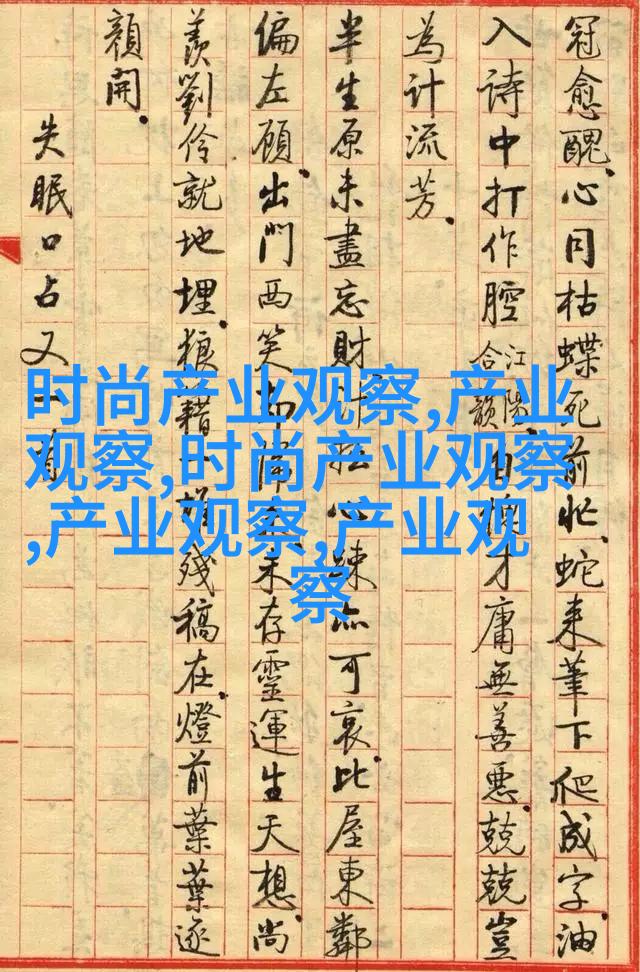 冠愈醜。心同枯蝶死前忙。蛇來筆下爬成字。油
入詩中打作腔江陽合韻。自才庸無善惡。兢兢豈
為計流芳。
半生原未盡忘財。心疎亦可哀。比屋東鄰
偏左顧。出門西笑未存靈運生天想。尚
羨劉伶就地埋。狼藉殘稿在。燈前葉葉逐
顏開。
失眠口占又一首
时尚产业观察,产业
观察,时尚产业观察
,产业观察,产业观
察